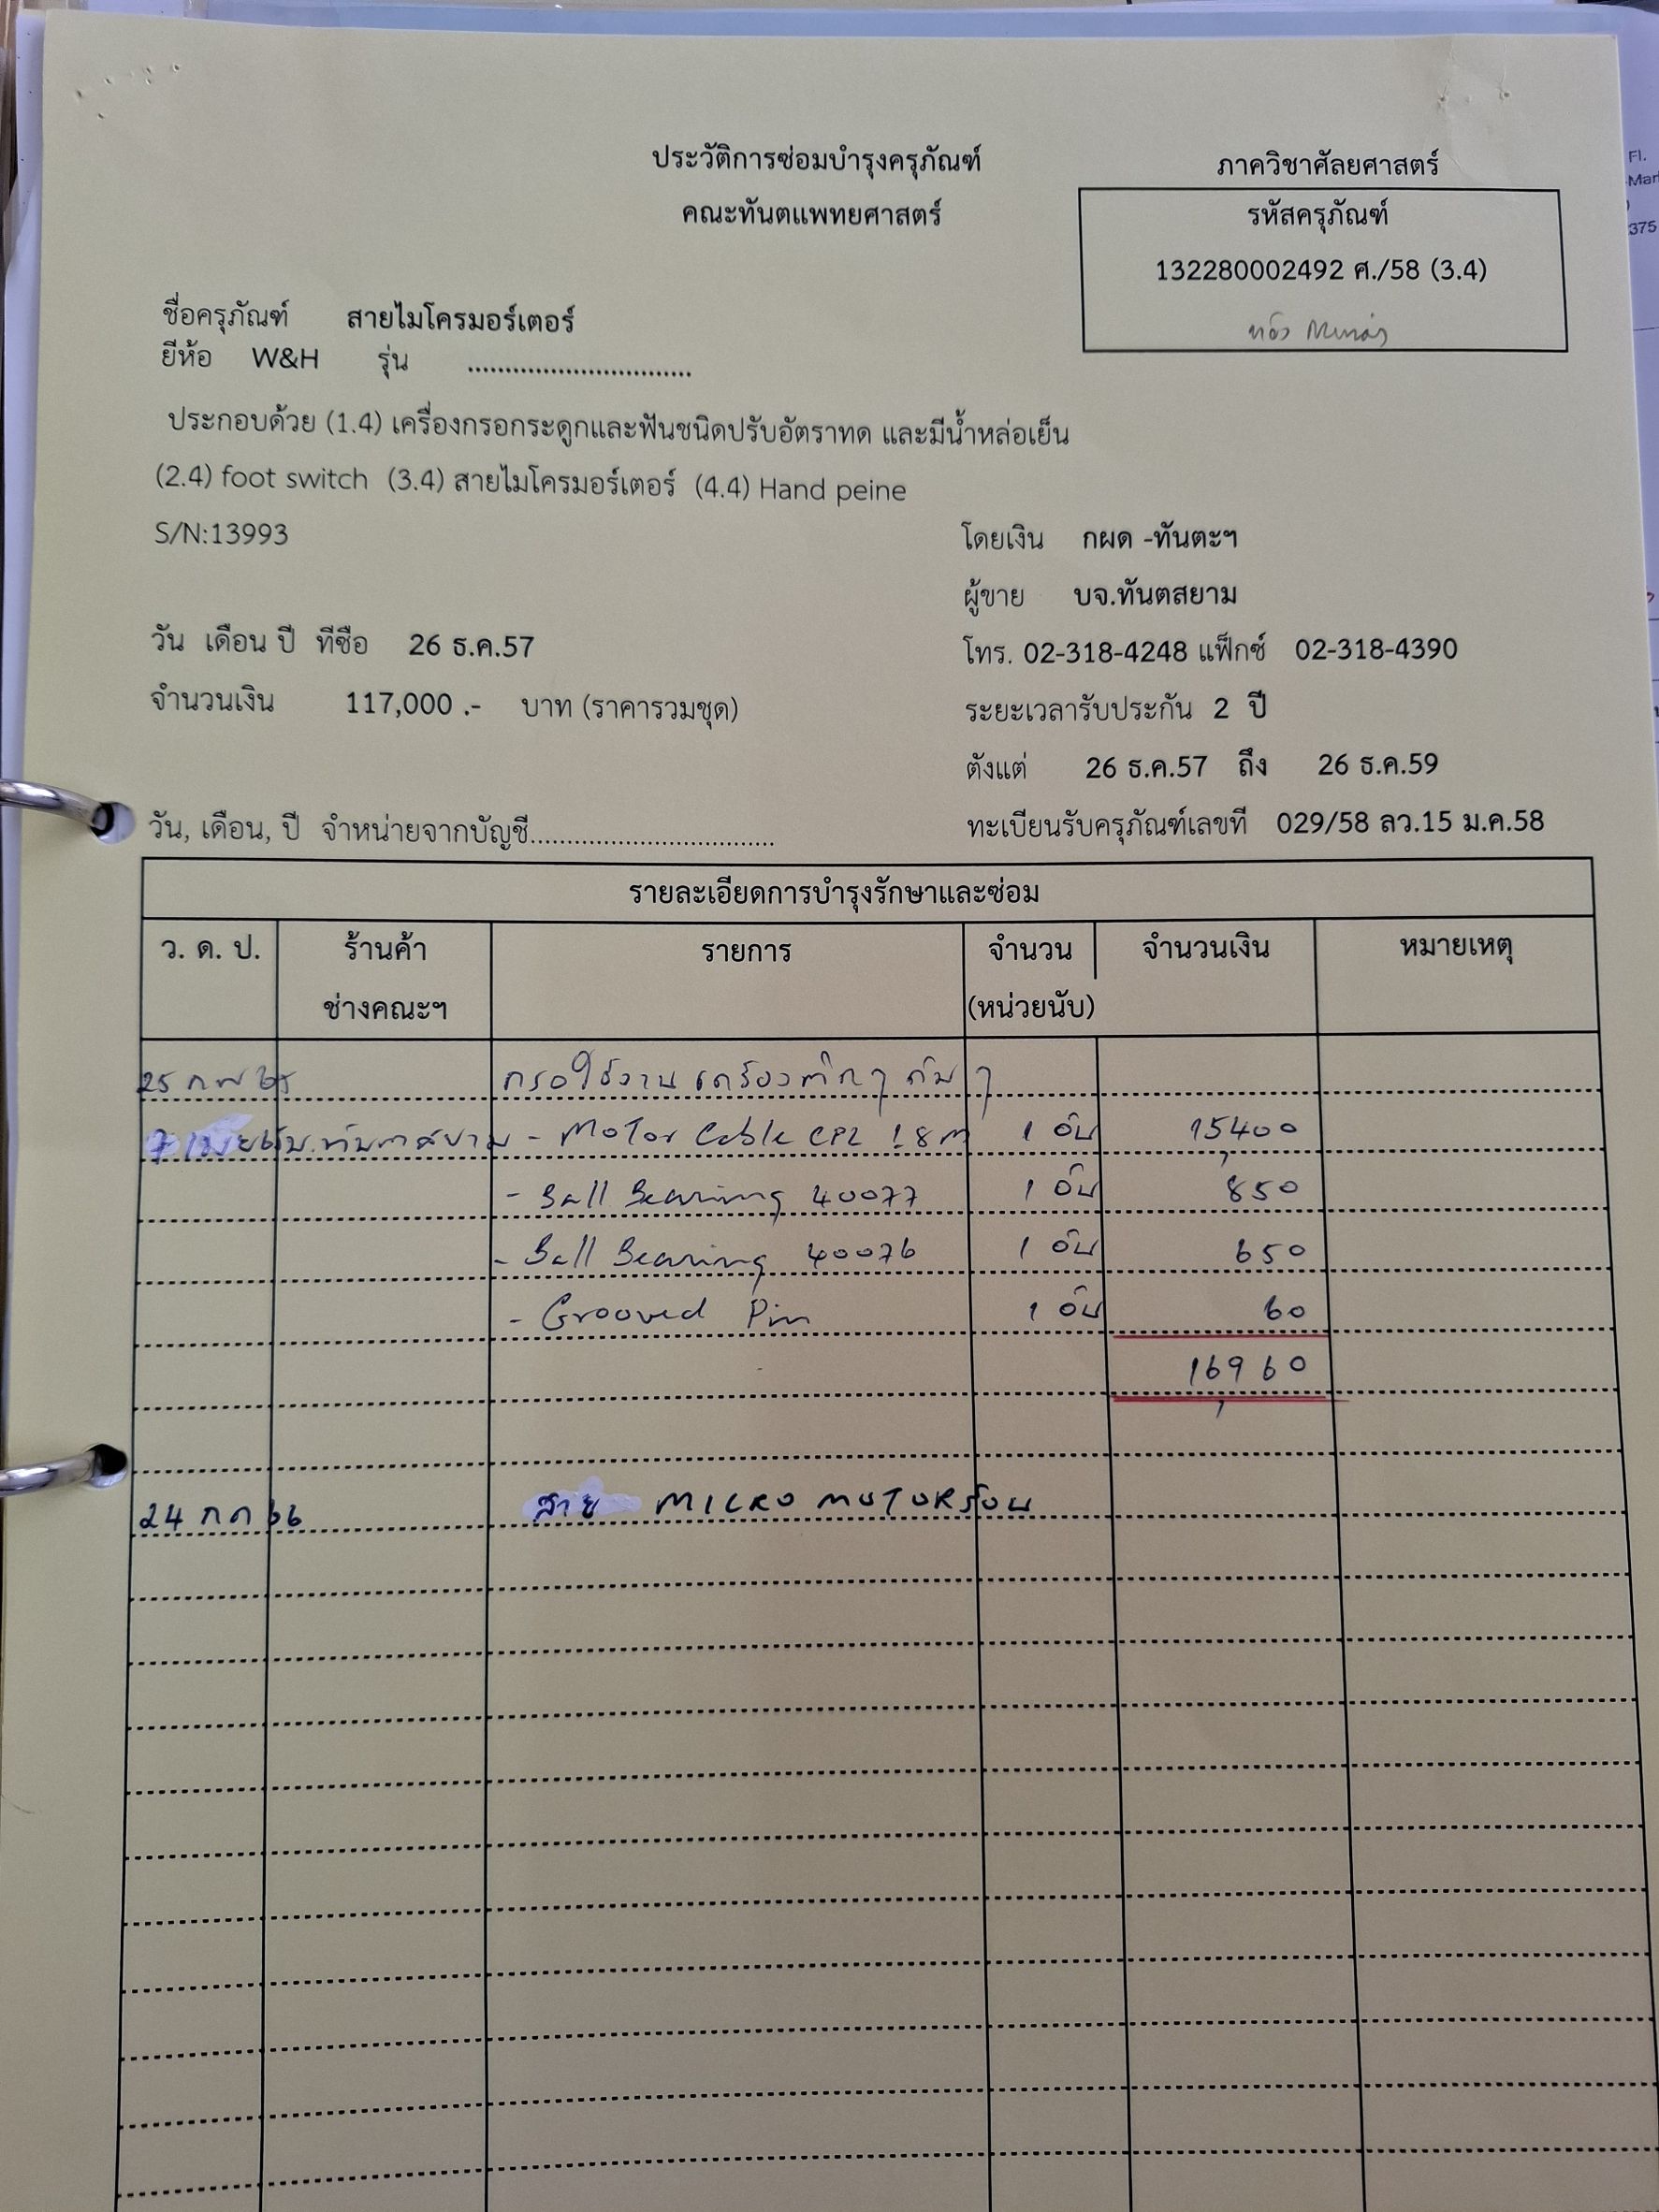 ประวัติการซ่อมบำรุงครุภัณฑ์
คณะทันตแพทยศาสตร์
ภาควิชาศัลยศาสตร์
รหัสครุภัณฑ์
132280002492 ศ./58 (3.4)
ชื่อครุภัณฑ์ สายไมโครมอร์เตอร์
ยี่ห้อ W&H รุ่น ..............................
ประกอบด้วย (1.4) เครื่องกรอกระดูกและฟันชนิดปรับอัตราทด และมีน้ำหล่อเย็น
(2.4) foot switch (3.4) สายไมโครมอร์เตอร์ (4.4) Hand peine
S/N:13993
โดยเงิน กผด -ทันตะฯ
ผู้ขาย บจ.ทันตสยาม
วัน เดือน ปี ที่ซื้อ 26 ธ.ค.57
โทร. 02-318-4248 แฟ็กซ์ 02-318-4390
จำนวนเงิน 117,000 .- บาท (ราคารวมชุด)
ระยะเวลารับประกัน 2 ปี
ตั้งแต่ 26 ธ.ค.57 ถึง 26 ธ.ค.59
วัน, เดือน, ปี จำหน่ายจากบัญชี.................................
ทะเบียนรับครุภัณฑ์เลขที่ 029/58 ลว.15 ม.ค.58
รายละเอียดการบำรุงรักษาและซ่อม
ว. ด. ป. ร้านค้า รายการ จำนวน จำนวนเงิน หมายเหตุ
ช่างคณะฯ (หน่วยนับ)
25 กพ 65 กรอใช้งาน เครื่องติดๆ ดับๆ
7 เมย 65 บ.ทันตสยาม - Motor Cable CPL 1.8m 1 อัน 15,400
- Ball Bearing 40077 1 อัน 850
- Ball Bearing 40076 1 อัน 650
- Grooved Pin 1 อัน 60
16,960
24 กค 66 สาย MICRO MOTOR ร้อน
Fl.
375